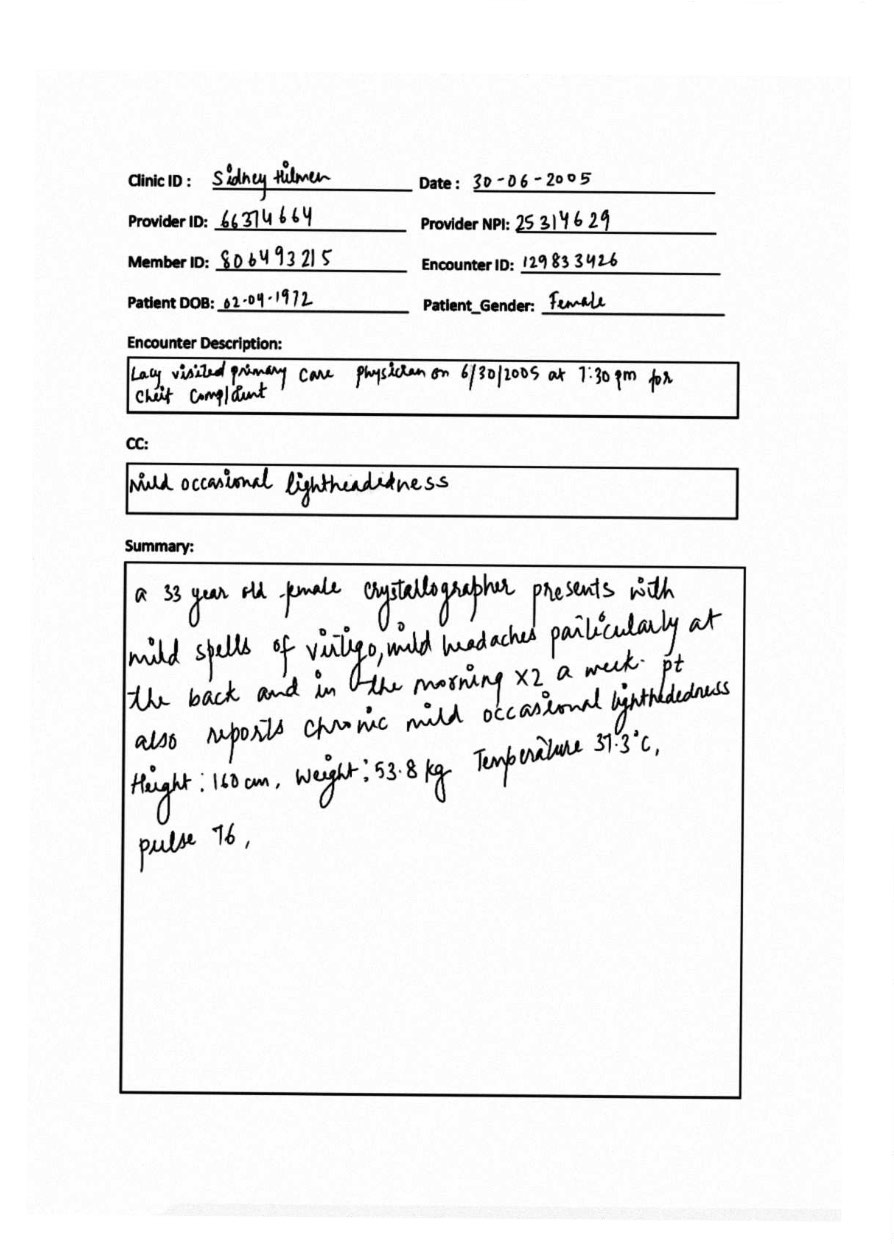 Clinic ID : Sidney Hilmen Date : 30-06-2005
Provider ID: 66374664 Provider NPI: 25314629
Member ID: 806493215 Encounter ID: 129833426
Patient DOB: 02-04-1972 Patient_Gender: Female
Encounter Description:
Lacy visited primary care physician on 6/30/2005 at 7:30 pm for
cheif complaint
CC:
Mild occasional lightheadedness
Summary:
a 33 year old female crystallographer presents with
mild spells of virtigo, mild headaches particularly at
the back and in the morning x2 a week. pt
also reports chronic mild occasional lighthededness
Height : 160 cm, Weight : 53.8 kg Temperature 37.3°C,
pulse 76,